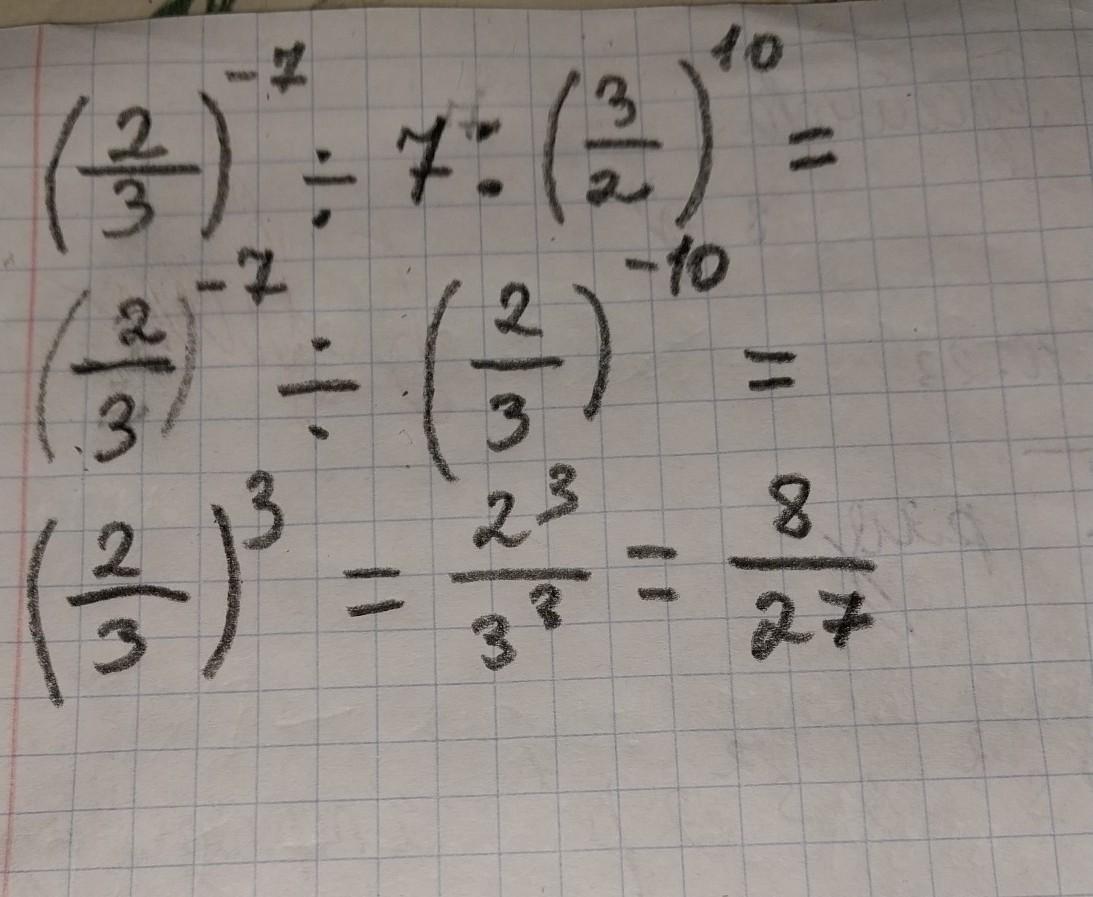 (2/3)^-7 ÷ 7 : (3/2)^10 =
(2/3)^-7 ÷ (2/3)^-10 =
(2/3)^3 = 2^3/3^3 = 8/27